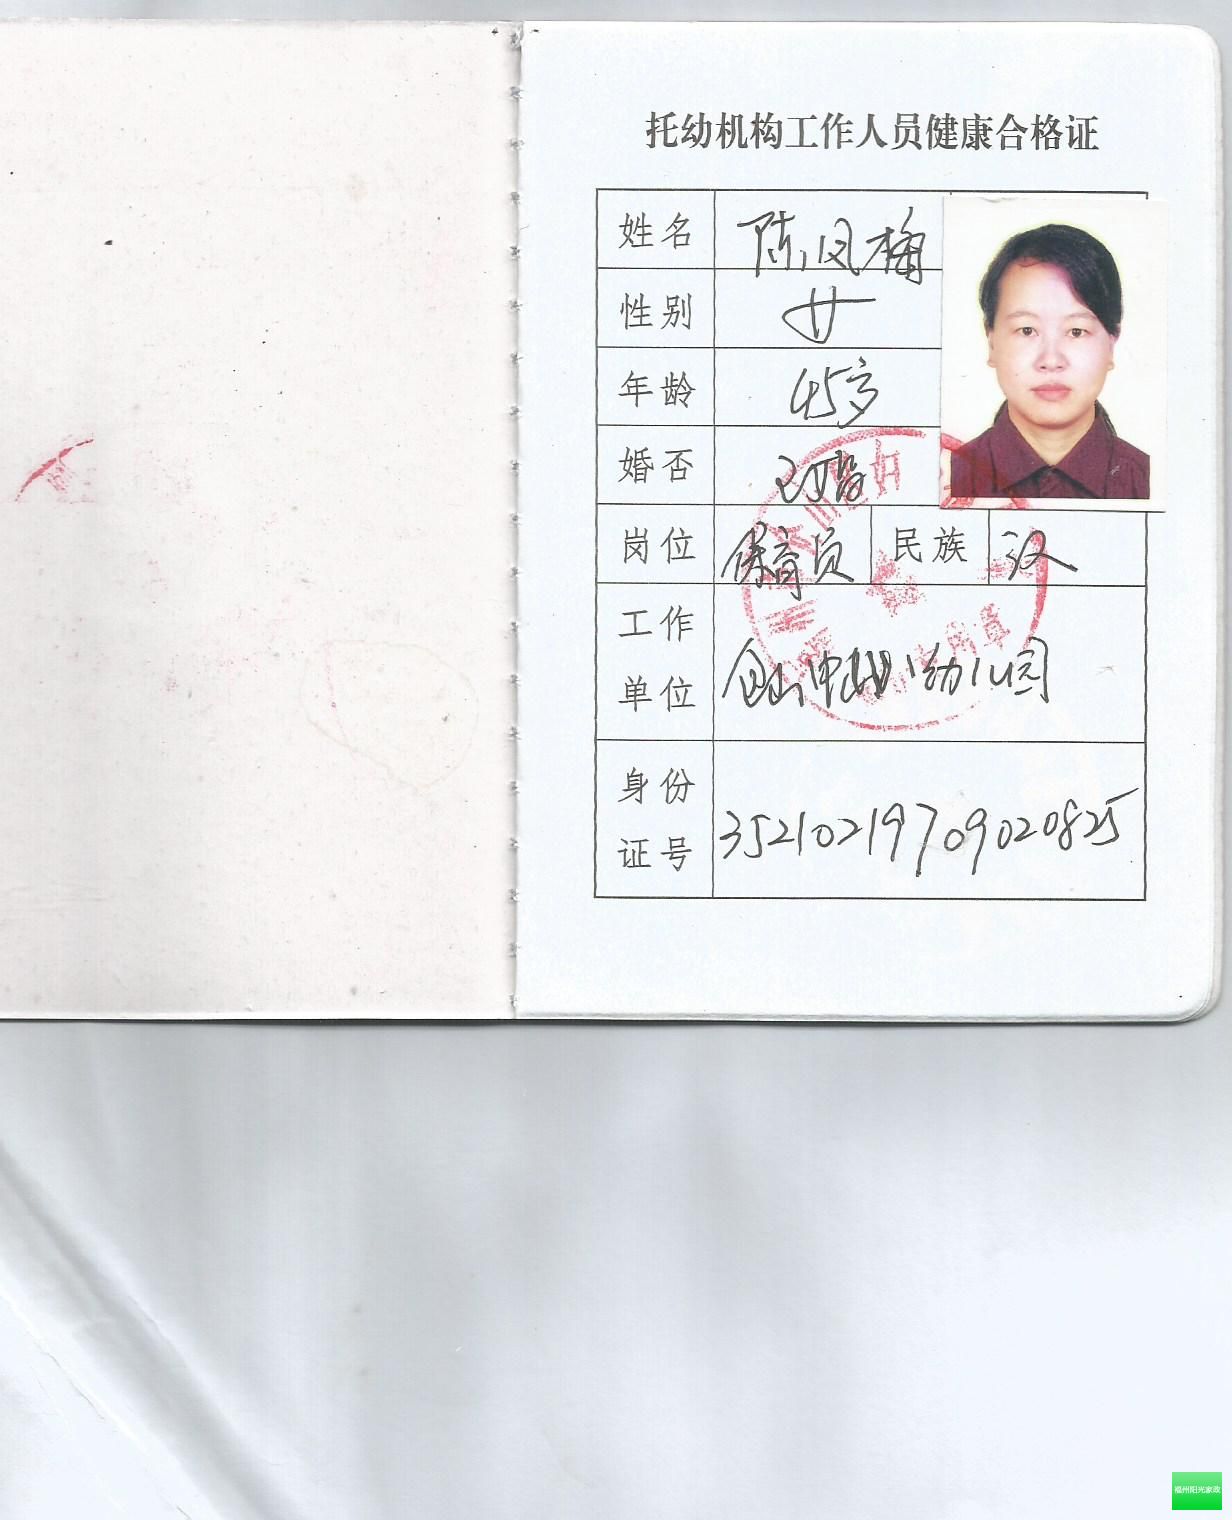 托幼机构工作人员健康合格证
姓名 陈凤梅
性别 女
年龄 45岁
婚否 已婚
岗位 保育员 民族 汉
工作
单位 仓山 幼儿园
身份
证号 35210219709020825
福州阳光家政